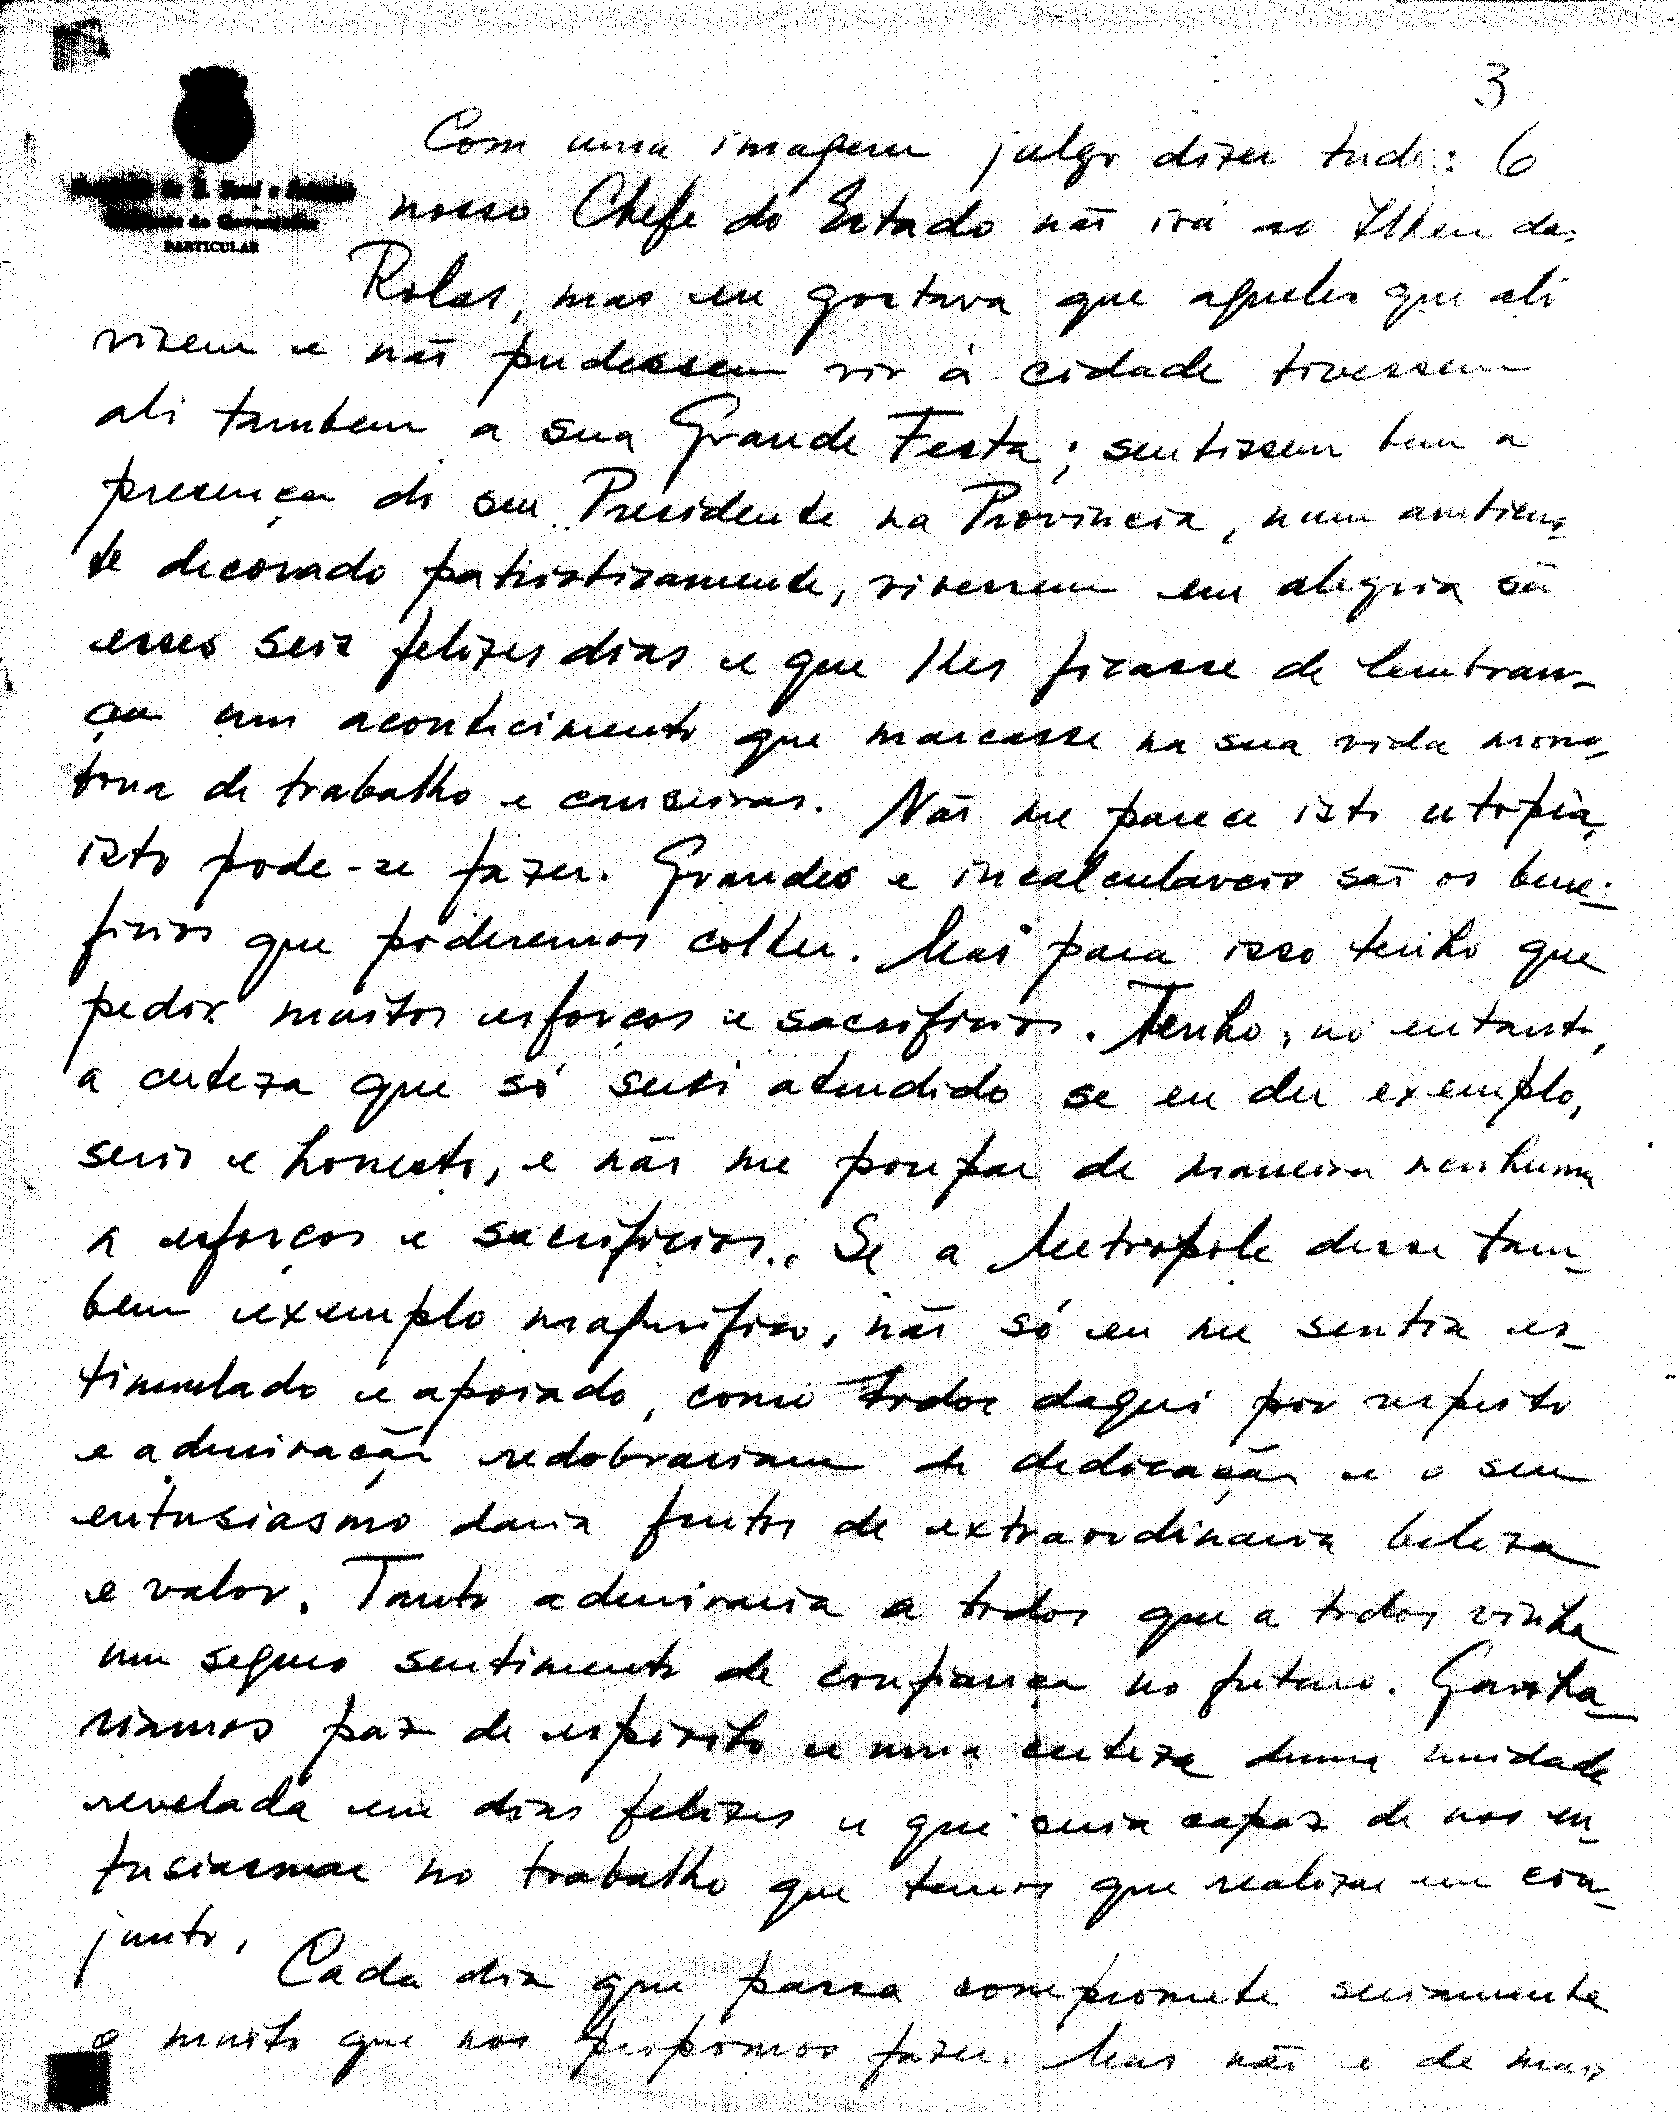 3
Com uma imagem julgo dizer tudo: O
nosso Chefe do Estado não irá ao Ilheu das
PARTICULAR
Rolas, mas eu gostava que aqueles que ali
vivem e não pudessem vir à cidade tivessem
ali tambem a sua Grande Festa; sentissem bem a
presença do seu Presidente na Provincia, num ambien-
te decorado patrioticamente, vivessem em alegria sã
esses seis felizes dias e que lhes ficasse de lembran-
ça um acontecimento que marcasse na sua vida mono-
tona de trabalho e canseiras. Não me parece isto utopia,
isto pode-se fazer. Grandes e incalculaveis são os bene-
ficios que poderemos colher. Mas para isso tenho que
pedir muitos esforços e sacrificios. Tenho, no entanto,
a certeza que só serei atendido se eu der exemplo,
serio e honesto, e não me poupar de maneira nenhuma
a esforços e sacrificios. Se a Metropole desse tam-
bem exemplo magnifico, não só eu me sentia es-
timulado e apoiado, como todos daqui por respeito
e admiração redobrariam de dedicação e o seu
entusiasmo daria frutos de extraordinaria beleza
e valor. Tanto admiraria a todos que a todos vinha
um seguro sentimento de confiança no futuro. Ganha-
riamos paz de espirito e uma certeza duma unidade
revelada em dias felizes e que seria capaz de nos en-
tusiasmar no trabalho que temos que realizar em con-
junto.
Cada dia que passa compromete seriamente
o muito que nos propomos fazer. Mas não é de mais